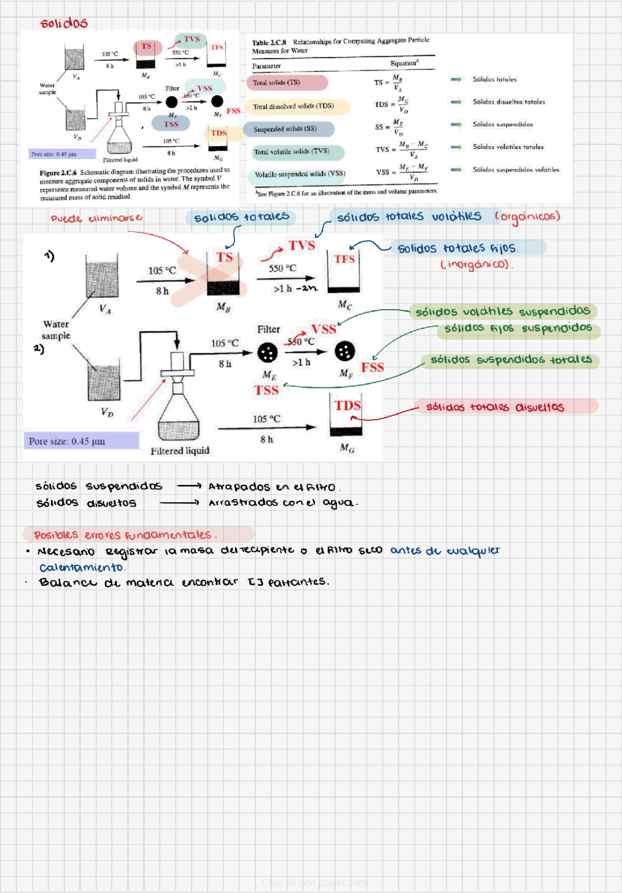 sólidos
TS
TVS
TFS
105 °C
550 °C
8 h
>1 h
M_B
M_C
V_A
Water
sample
Filter
VSS
105 °C
550 °C
8 h
>1 h
M_F
FSS
TSS
V_D
105 °C
8 h
TDS
M_G
Pore size: 0.45 µm
Filtered liquid
Figure 2.C.6 Schematic diagram illustrating the procedures used to
measure aggregate components of solids in water. The symbol V
represents measured water volume and the symbol M represents the
measured mass of solid residual.
Table 2.C.8 Relationships for Computing Aggregate Particle
Measures for Water
Parameter Equation^a
Total solids (TS) TS = M_B / V_A Sólidos totales
Total dissolved solids (TDS) TDS = M_G / V_D Sólidos disueltos totales
Suspended solids (SS) SS = M_E / V_D Sólidos suspendidos
Total volatile solids (TVS) TVS = M_B − M_C / V_A Sólidos volátiles totales
Volatile suspended solids (VSS) VSS = M_E − M_F / V_D Sólidos suspendidos volátiles
See Figure 2.C.6 for an illustration of the mass and volume parameters.
Puede eliminarse
solidos totales
sólidos totales volátiles (orgánicos)
1)
TS
TVS
TFS
solidos totales fijos.
(inorgánico).
105 °C
550 °C
8 h
>1 h -2h
M_B
M_C
V_A
Water
sample
2)
Filter
VSS
sólidos volátiles suspendidos
105 °C
550 °C
sólidos fijos suspendidos
8 h
>1 h
M_E
M_F
FSS
sólidos suspendidos totales
TSS
V_D
105 °C
8 h
TDS
sólidos totales disueltos
M_G
Pore size: 0.45 µm
Filtered liquid
sólidos suspendidos → Atrapados en el filtro.
sólidos disueltos → Arrastrados con el agua.
Posibles errores fundamentales.
• Necesario Registrar la masa del recipiente o el filtro seco antes de cualquier
calentamiento.
· Balance de materia encontrar [] faltantes.